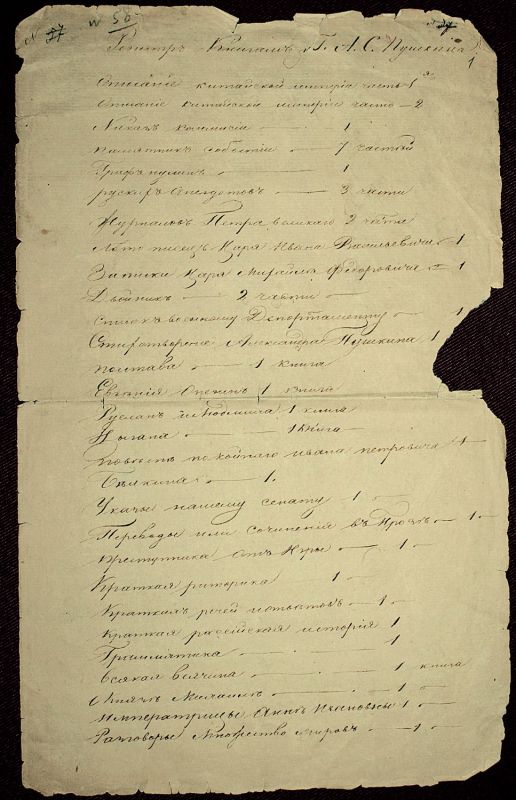 № 56
Реэстръ Книгамъ Г. А. С. Пушкина
1
Описаніе китайской имперіи часть 1
Описаніе китайской имперіи часть — 2
Наказъ — 1
памятник событіи — 7 частей
Графъ нулинъ — 1
рускихъ анекдотовъ — 3 части
Журналовъ Петра великаго 2 части
Лето писецъ Царя Ивана Васильевича — 1
Записки Царя Михайла Федоровича — 1
Двойникъ — 2 части
списокъ военному Департаменту — 1
Стихотворение Александра Пушкина 1
полтава — 1 книга
Евгений Онегин 1 книга
Руслан и Людмила 1 книга
Цыгана — 1 книга
повести покойнаго ивана петровича 1
Белкина — 1.
Указы нашему сенату 1
Переводы или сочинения въ Прозе — 1
преступника отъ Игры — 1
Краткая риторика 1
Краткихъ речей — 1
краткая российская история 1
Грамматика — 1
всякая всячина — 1 книга
Князь — 1
императрицы Анны Ивановны 1
Разговоры Множество Миров — 1